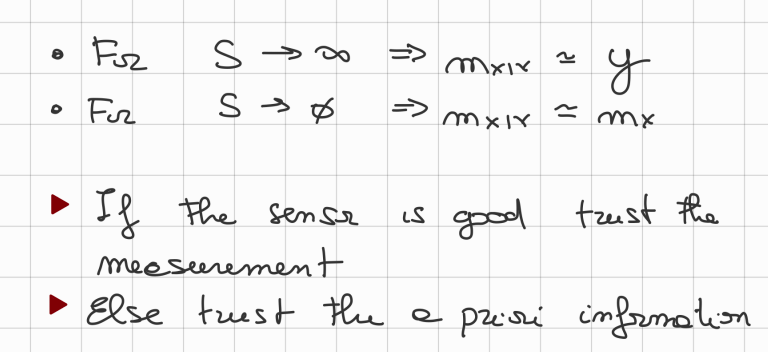 • For S → ∞ ⇒ m_{x|Y} ≃ y
• For S → ∅ ⇒ m_{x|Y} ≃ m_x
▶ If the sensor is good trust the
measurement
▶ Else trust the a priori information